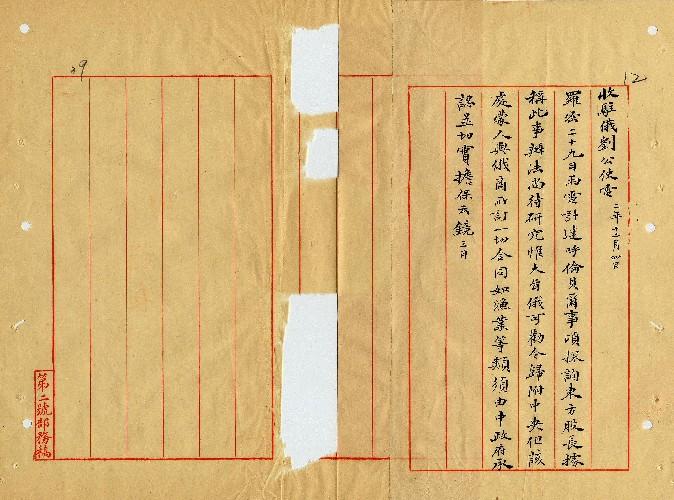 12
收駐俄劉公使電 二年十二月四日
羅密二十九日兩電計達呼倫貝爾事頃探詢東方股長據
稱此事辦法尚待研究惟大旨俄可勸令歸附中央但該
處蒙人與俄商所訂一切合同如漁業等類須由中政府承
認並切實擔保云鏡 三日
29
第二號部務稿